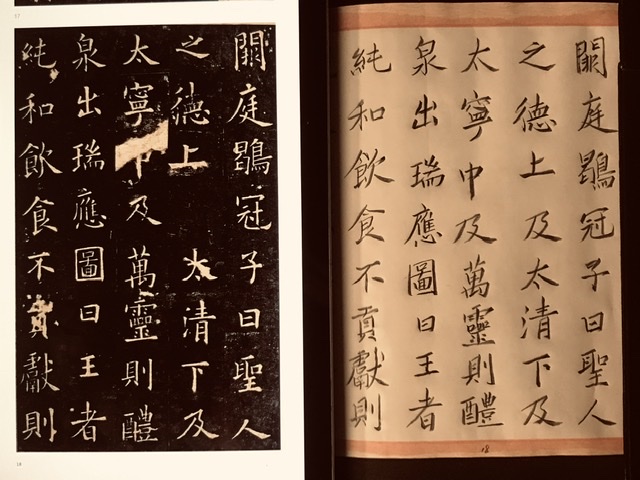 闕庭鶡冠子曰聖人
之德上太清下及
太寧中及萬靈則醴
泉出瑞應圖曰王者
純和飲食不貢獻則
18
闕庭鶡冠子曰聖人
之德上及太清下及
太寧中及萬靈則醴
泉出瑞應圖曰王者
純和飲食不貢獻則
18